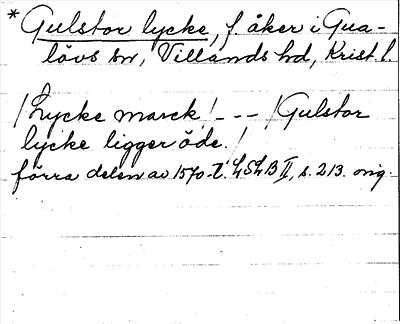 * Gulstor lycke, f. åker i Gua-
lövs sn, Villands hd, Krist. l.
/Lycke marck/ - - - /Gulstor
lycke ligger öde./
förra delen av 1570-t. LSLB II, s. 213. orig.